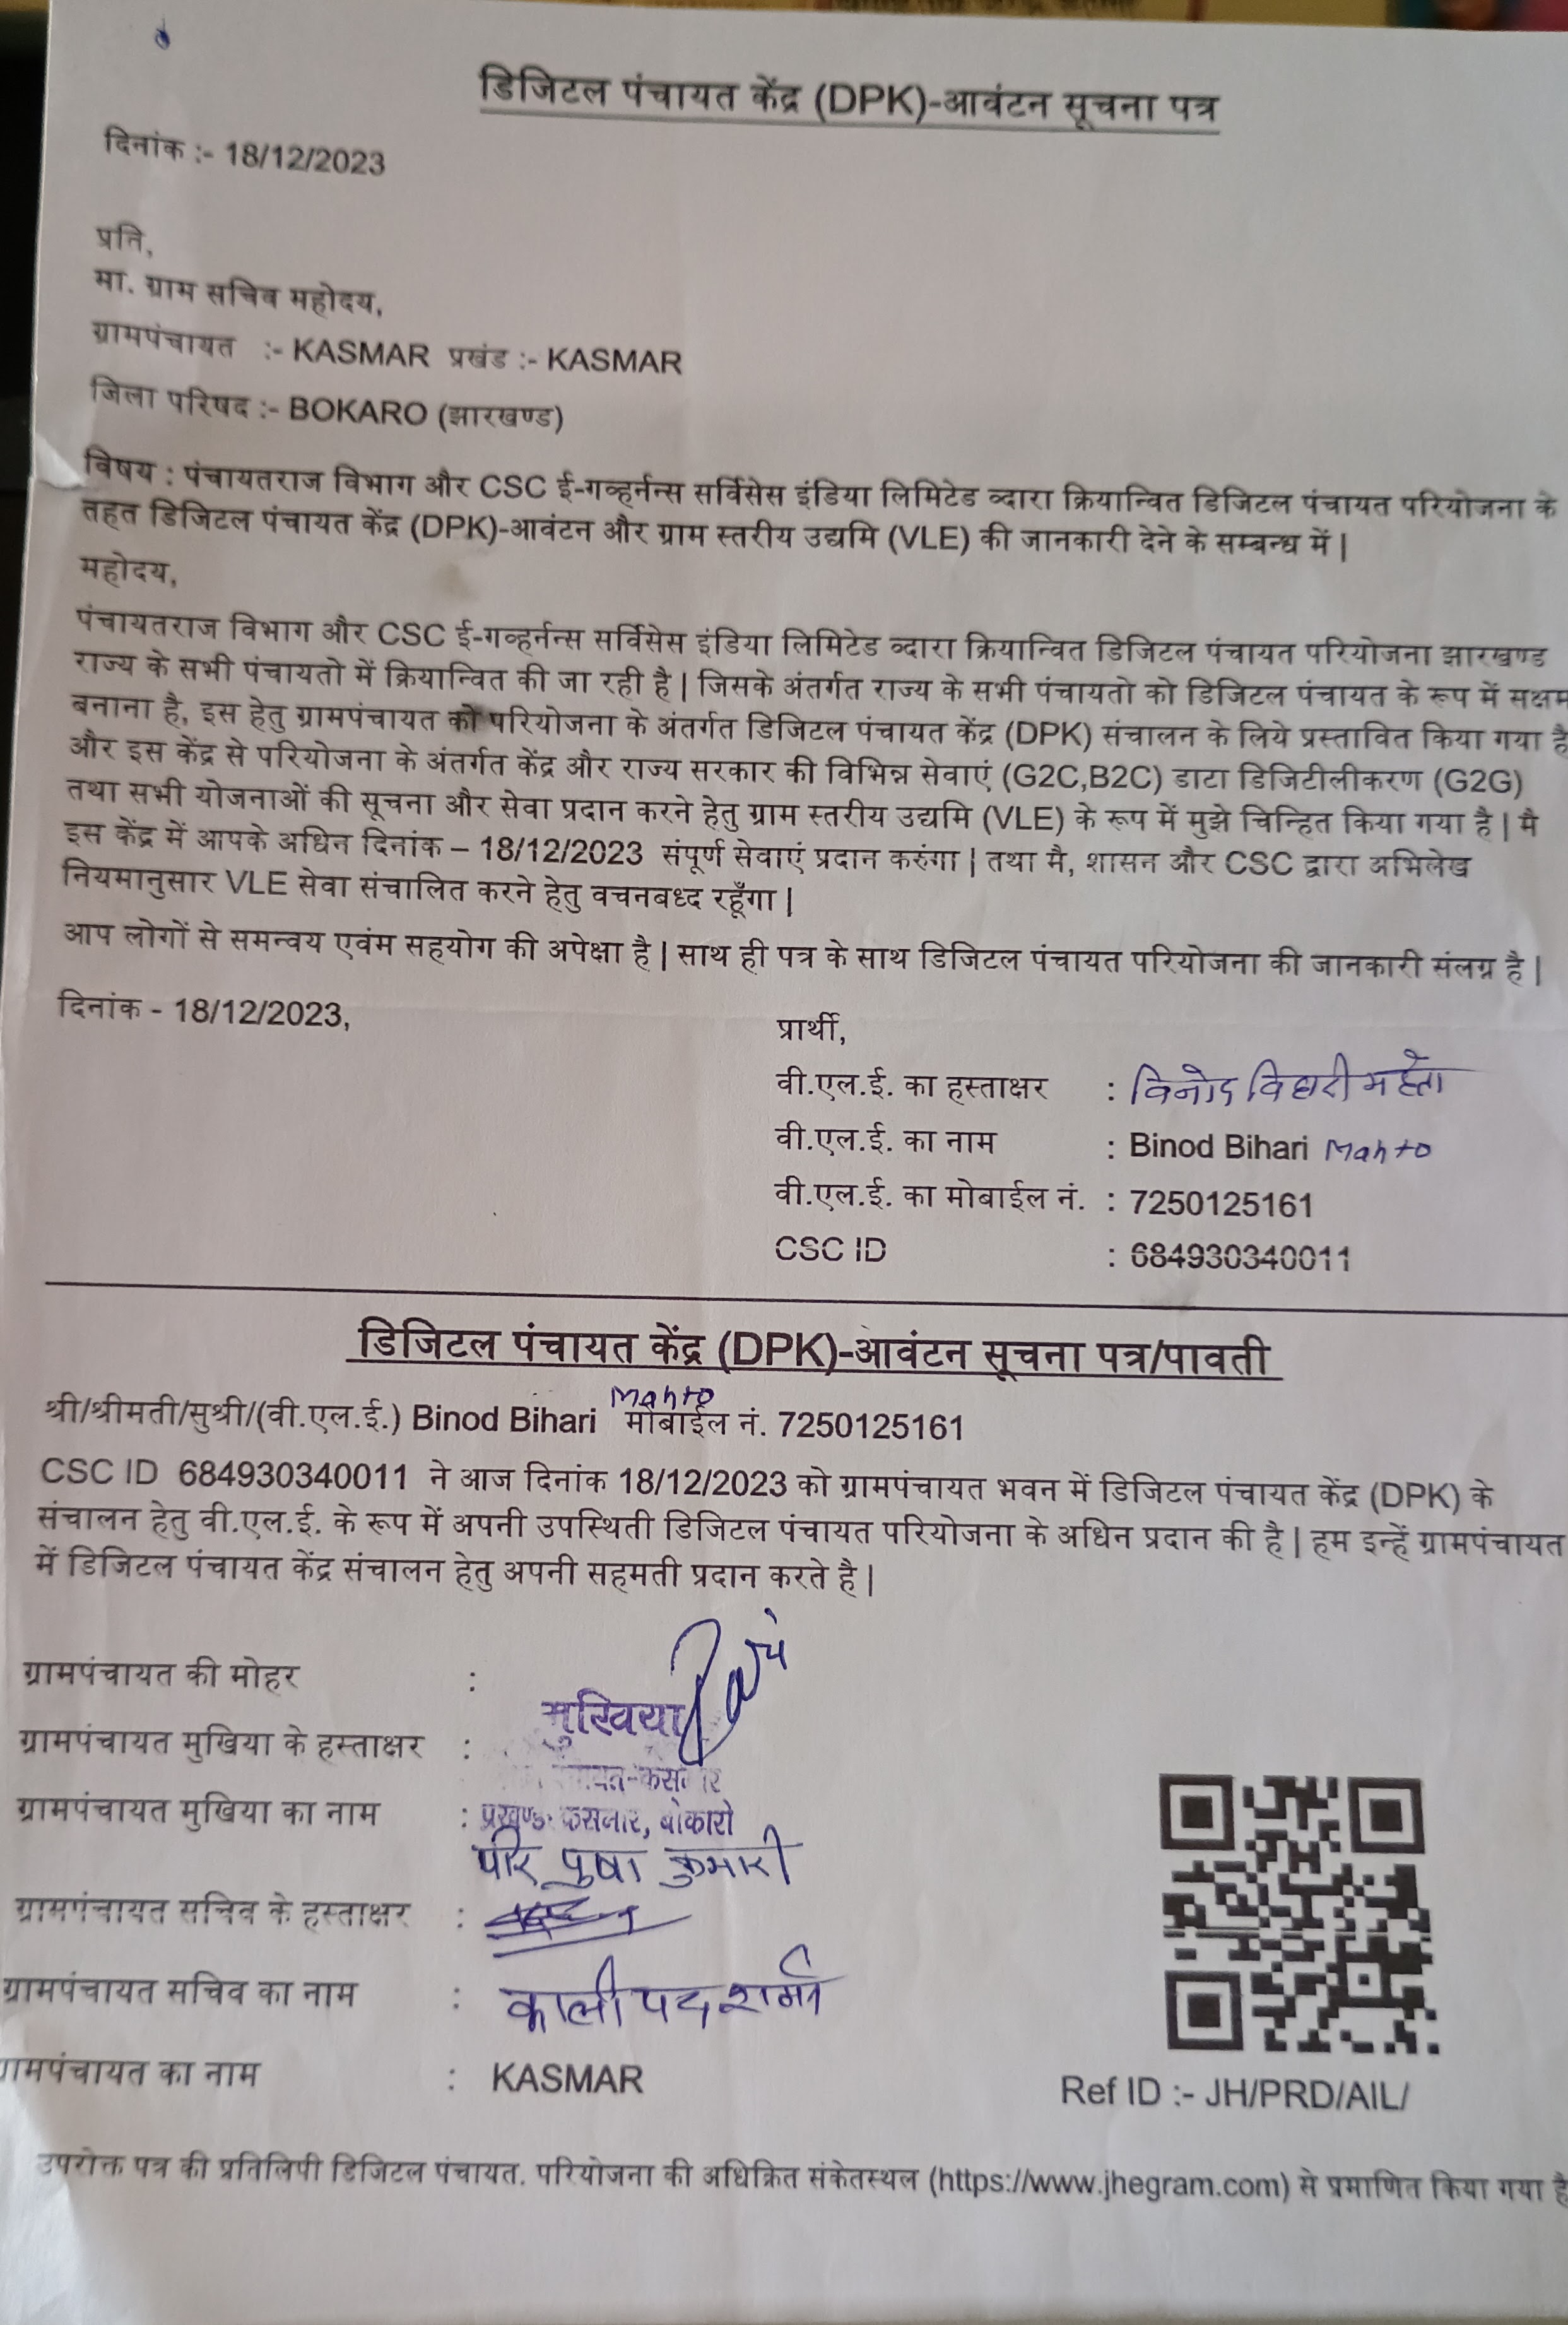 डिजिटल पंचायत केंद्र (DPK)-आवंटन सूचना पत्र
दिनांक :- 18/12/2023
प्रति,
मा. ग्राम सचिव महोदय,
ग्रामपंचायत :- KASMAR प्रखंड :- KASMAR
जिला परिषद :- BOKARO (झारखण्ड)
विषय : पंचायतराज विभाग और CSC ई-गव्हर्नन्स सर्विसेस इंडिया लिमिटेड व्दारा क्रियान्वित डिजिटल पंचायत परियोजना के
तहत डिजिटल पंचायत केंद्र (DPK)-आवंटन और ग्राम स्तरीय उद्यमि (VLE) की जानकारी देने के सम्बन्ध में |
महोदय,
पंचायतराज विभाग और CSC ई-गव्हर्नन्स सर्विसेस इंडिया लिमिटेड व्दारा क्रियान्वित डिजिटल पंचायत परियोजना झारखण्ड
राज्य के सभी पंचायतो में क्रियान्वित की जा रही है | जिसके अंतर्गत राज्य के सभी पंचायतो को डिजिटल पंचायत के रूप में सक्षम
बनाना है, इस हेतु ग्रामपंचायत को परियोजना के अंतर्गत डिजिटल पंचायत केंद्र (DPK) संचालन के लिये प्रस्तावित किया गया है
और इस केंद्र से परियोजना के अंतर्गत केंद्र और राज्य सरकार की विभिन्न सेवाएं (G2C,B2C) डाटा डिजिटीलीकरण (G2G)
तथा सभी योजनाओं की सूचना और सेवा प्रदान करने हेतु ग्राम स्तरीय उद्यमि (VLE) के रूप में मुझे चिन्हित किया गया है | मै
इस केंद्र में आपके अधिन दिनांक – 18/12/2023 संपूर्ण सेवाएं प्रदान करुंगा | तथा मै, शासन और CSC द्वारा अभिलेख
नियमानुसार VLE सेवा संचालित करने हेतु वचनबध्द रहूँगा |
आप लोगों से समन्वय एवंम सहयोग की अपेक्षा है | साथ ही पत्र के साथ डिजिटल पंचायत परियोजना की जानकारी संलग्न है |
दिनांक - 18/12/2023,
प्रार्थी,
वी.एल.ई. का हस्ताक्षर : विनोद विहारी महतो
वी.एल.ई. का नाम : Binod Bihari Mahto
वी.एल.ई. का मोबाईल नं. : 7250125161
CSC ID : 684930340011
डिजिटल पंचायत केंद्र (DPK)-आवंटन सूचना पत्र/पावती
श्री/श्रीमती/सुश्री/(वी.एल.ई.) Binod Bihari Mahto मोबाईल नं. 7250125161
CSC ID 684930340011 ने आज दिनांक 18/12/2023 को ग्रामपंचायत भवन में डिजिटल पंचायत केंद्र (DPK) के
संचालन हेतु वी.एल.ई. के रूप में अपनी उपस्थिती डिजिटल पंचायत परियोजना के अधिन प्रदान की है | हम इन्हें ग्रामपंचायत
में डिजिटल पंचायत केंद्र संचालन हेतु अपनी सहमती प्रदान करते है |
ग्रामपंचायत की मोहर :
मुखिया
ग्रामपंचायत मुखिया के हस्ताक्षर :
ग्रामपंचायत मुखिया का नाम : प्रखण्ड- कसमार, बोकारो
कुमारी
ग्रामपंचायत सचिव के हस्ताक्षर :
ग्रामपंचायत सचिव का नाम : कालीपद शर्मा
ग्रामपंचायत का नाम : KASMAR
Ref ID :- JH/PRD/AIL/
उपरोक्त पत्र की प्रतिलिपी डिजिटल पंचायत. परियोजना की अधिक्रित संकेतस्थल (https://www.jhegram.com) से प्रमाणित किया गया है